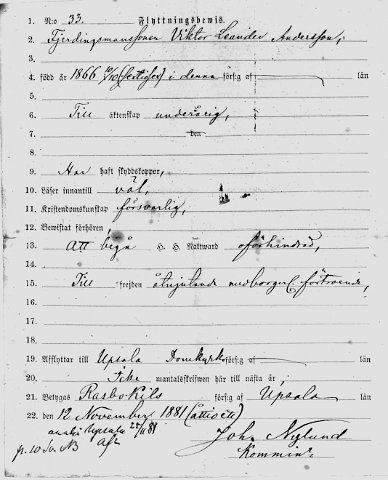 1. N:o 33. Flyttningsbevis.
2. Fjerdingsmanssonen Viktor Leander Andersson,
3.
4. född är 1866 10/10 (sextisex) i denna förs:g af län
5.
6. Till äktenskap underårig,
7. den
8.
9. Har haft skyddskoppor,
10. Läser innantill väl,
11. Kristendomskunskap försvarlig,
12. Bewistat förhören,
13. Att begå H. H. Nattward oförhindrad,
14.
15. Till frejden åtnjutande medborgerl. förtroende,
16.
17.
18.
19. Afflyttar till Upsala Domkyrko förs:g af län
20. Icke mantalsskrifwen här till nästa år,
21. Betygas Rasbokils förs:g af Upsala län
22. den 12 November 1881 (åttioett)
John Nylund
Kommin:r
Upsala 25/11 81